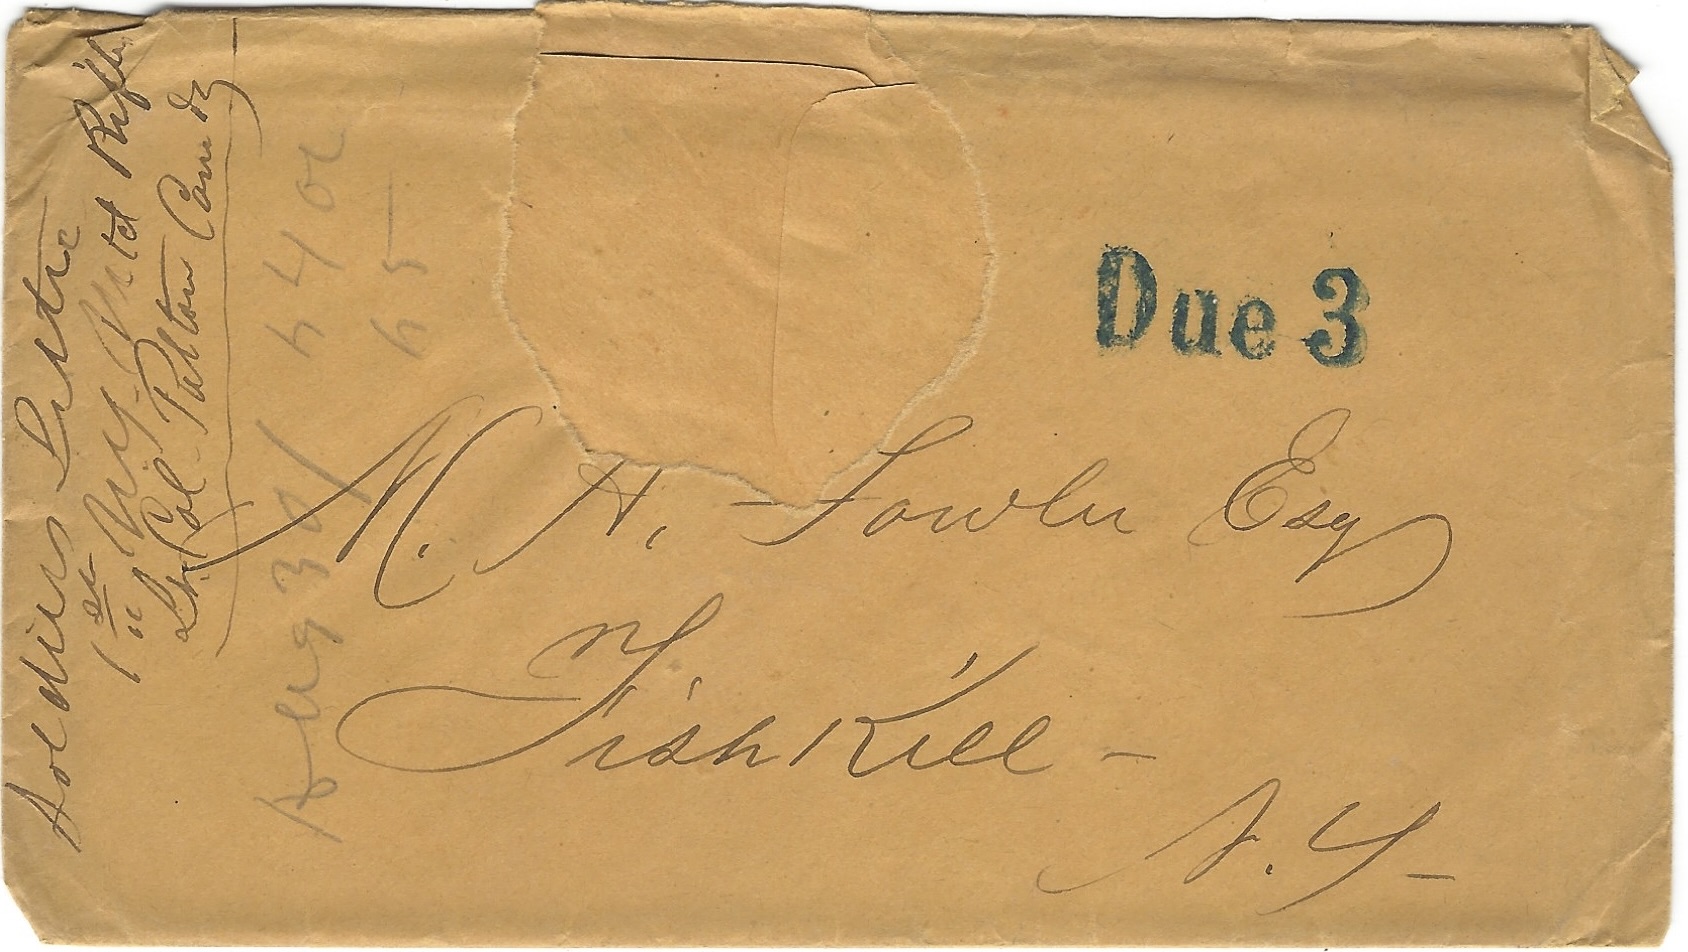 Soldiers Letter
1st N.Y. Mtd Rifles
Lt Col Patton Comdg
Aug 30/
Due 3
M. H. Fowler Esq
Fishkill -
N.Y -